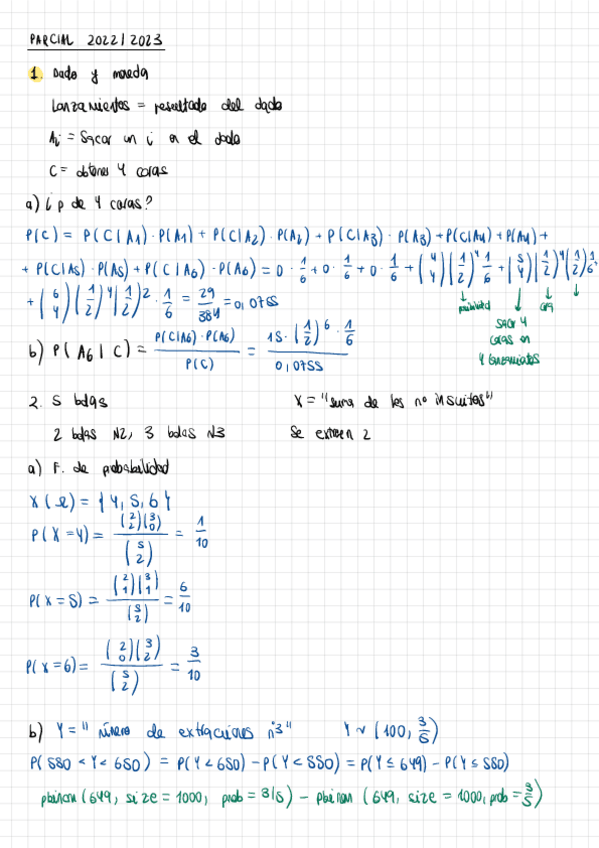 PARCIAL 2022/2023
1. Dado y moneda
Lanzamientos = resultado del dado
Ai = Sacar un i en el dado
C = obtener 4 caras
a) ¿p de 4 caras?
P(C) = P(C|A1)·P(A1) + P(C|A2)·P(A2) + P(C|A3)·P(A3) + P(C|A4) + P(A4) +
+ P(C|A5)·P(A5) + P(C|A6)·P(A6) = 0·1/6 + 0·1/6 + 0·1/6 + (4 4)(1/2)^4 1/6 + (5 4)(1/2)^4(1/2)1/6
+ (6 4)(1/2)^4(1/2)^2·1/6 = 29/384 = 0,0755
cara
sacar 4
caras en
4 lanzamientos
b) P(A6|C) = P(C|A6)·P(A6)/P(C) = 15·(1/2)^6·1/6/0,0755
2. 5 bolas X = "suma de los nº inscritos"
2 bolas N2, 3 bolas N3 Se extraen 2
a) F. de probabilidad
X(Ω) = {4, 5, 6}
P(X=4) = (2 2)(3 0)/(5 2) = 1/10
P(X=5) = (2 1)(3 1)/(5 2) = 6/10
P(X=6) = (2 0)(3 2)/(5 2) = 3/10
b) Y = "número de extracciones nº3" Y ~ (100, 3/5)
P(550 < Y < 650) = P(Y < 650) - P(Y < 550) = P(Y ≤ 649) - P(Y ≤ 550)
pbinom(649, size = 1000, prob = 3/5) - pbinom(649, size = 1000, prob = 3/5)